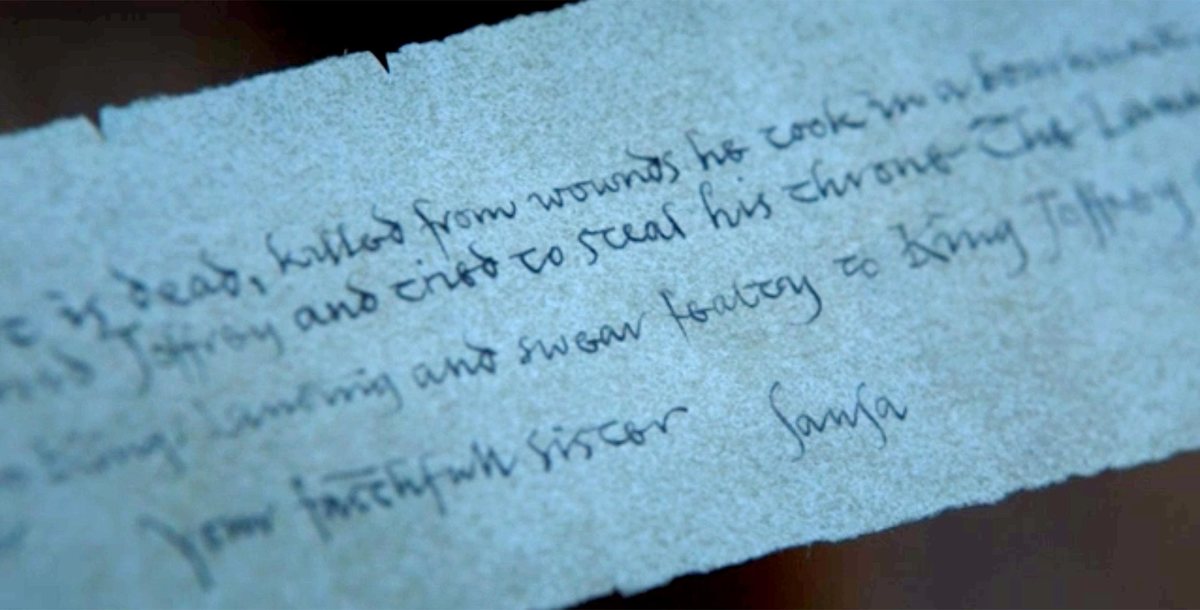 is dead, killed from wounds he took in a
Joffrey and tried to steal his throne The
and swear fealty to King Joffrey
Your faithfull sister Sansa